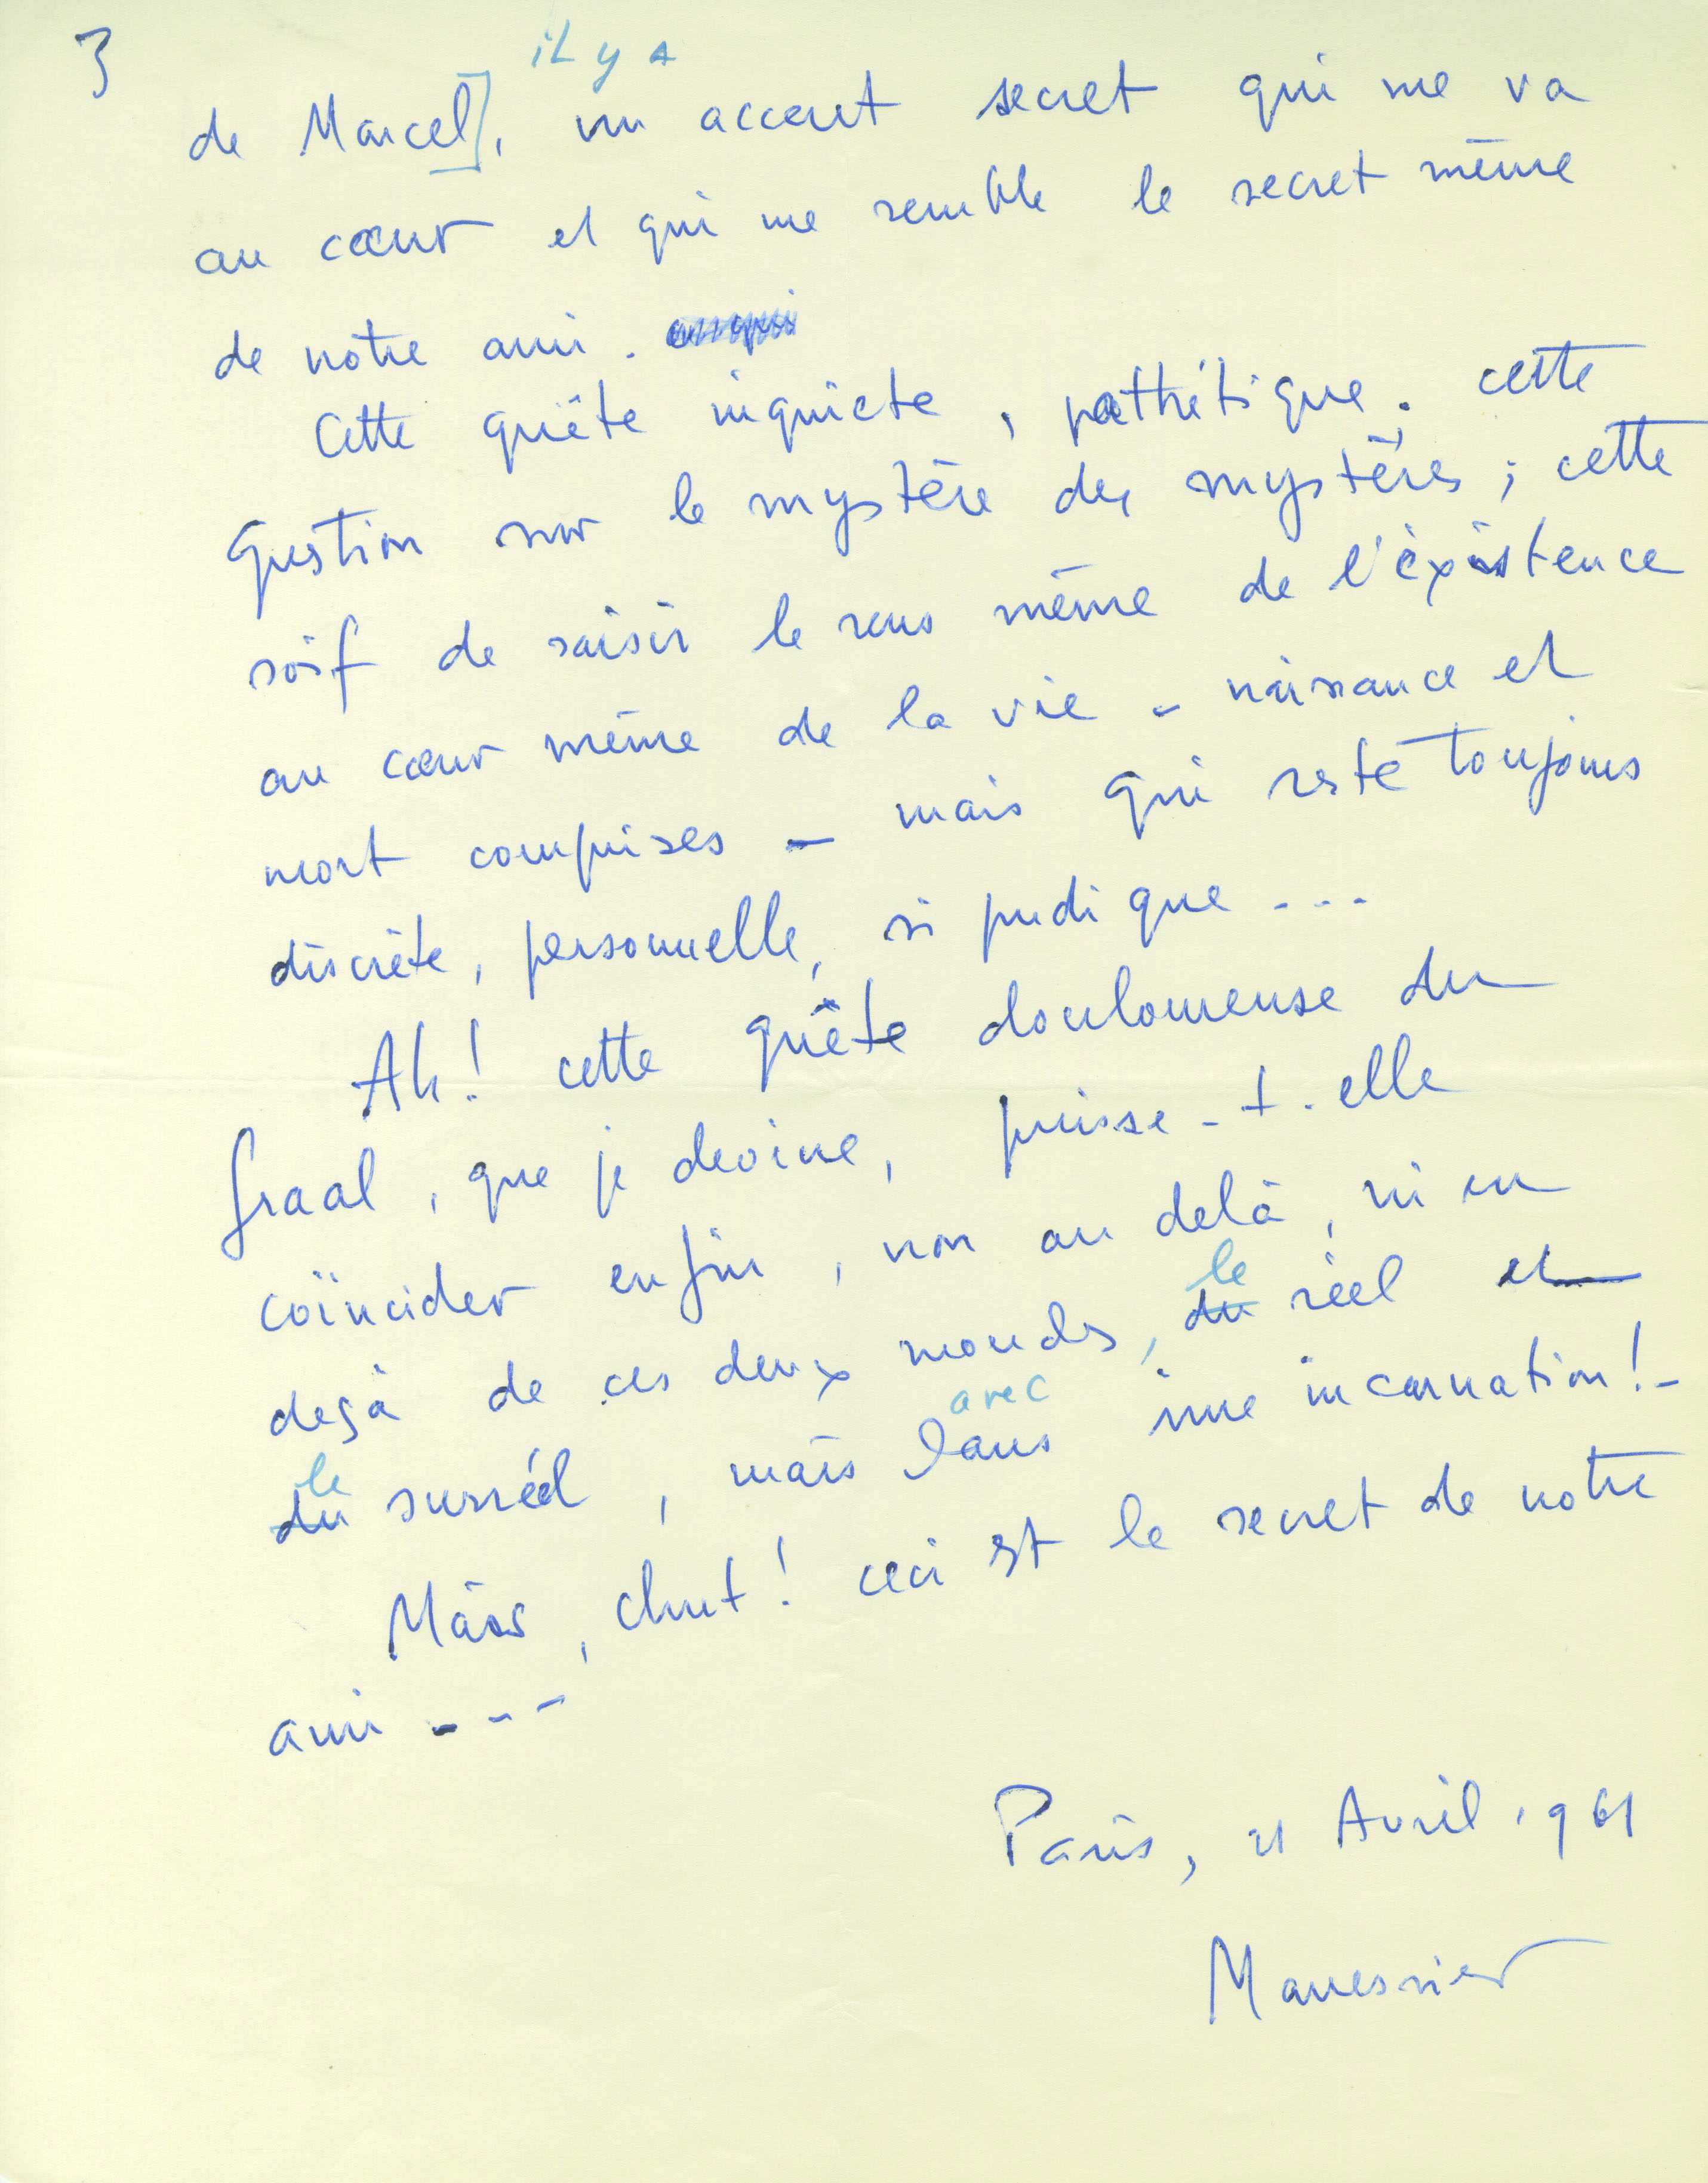 3
il y a
de Marcel], un accent secret qui me va
au cœur et qui me semble le secret même
de notre ami.
Cette quête inquiète, pathétique; cette
question sur le mystère des mystères; cette
soif de saisir le sens même de l'éxistence
au cœur même de la vie - naissance et
mort comprises - mais qui reste toujours
discrète, personnelle, si pudique ...
Ah! cette quête douloureuse du
graal, que je devine, puisse-t-elle
coïncider enfin, non au delà, ni en
le
deçà de ces deux mondes, du réel et
avec
le
du surréel, mais dans une incarnation! -
Mais, chut! ceci est le secret de notre
ami ---
Paris, 21 Avril 1961
Manessier